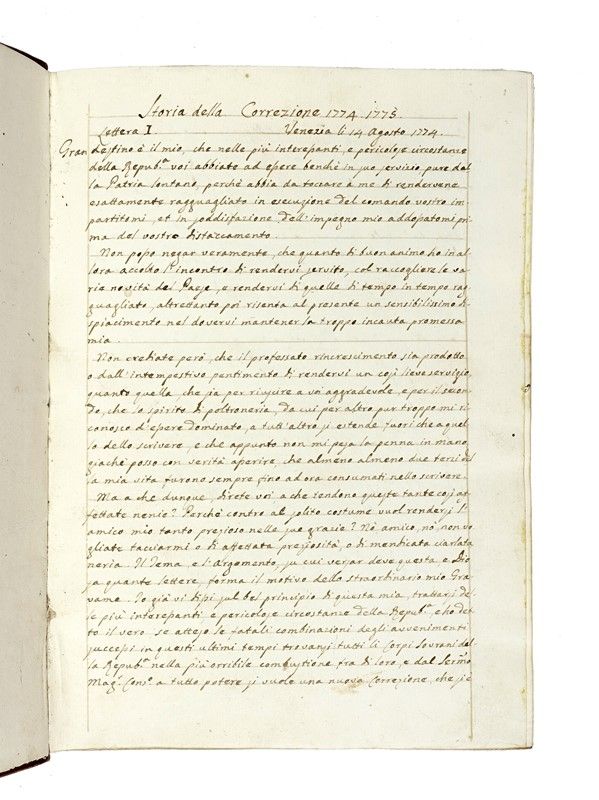 Storia della Correzione 1774. 1775.
Lettera I. Venezia li 14 Agosto 1774.
Gran destino è il mio, che nelle più interessanti, e pericolose circostanze
della Repub.ca voi abbiate ad essere benchè in suo servizio, pure dal
la Patria lontano, perchè abbia da toccare a me di rendervene
esattamente ragguagliato in esecuzione del comando vostro im
partitomi, et in soddisfazione dell'impegno mio addossatomi pri
ma del vostro distaccamento.
Non posso negar veramente, che quanto di buon animo ho in al
lora accolto l'incontro di rendervi servito, col raccogliere le va
rie novità del Paese, e rendervi di quelle di tempo in tempo rag
guagliato, altrettanto poi risenta al presente un sensibilissimo di
spiacimento nel dovervi mantener la troppo incauta promessa
mia.
Non crediate però, che il professato rincrescimento sia prodotto
o dall'intempestivo pentimento di rendervi un così lieve servizio,
quanto quello che sia per riuscire a voi aggradevole, e per il secon
do, che lo spirito di poltroneria, da cui per altro pur troppo mi ri
conosco d'essere dominato, a tutt'altro si estende fuori che a quel
lo dello scrivere, e che appunto non mi pesa la penna in mano,
giachè posso con verità asserire, che almeno almeno due terzi del
la mia vita furono sempre fino ad ora consumati nello scrivere.
Ma a che dunque, direte voi a che tendono queste tante così af
fettate nenie? Perchè contro al solito costume vuol rendersi l'
amico mio tanto prezioso nelle sue grazie? Nò amico, nò non vo
gliate tacciarmi o di affettata preziosità, o di mendicata ciarlata
neria. Il Tema, e l'Argomento, su cui versar deve questa, e Dio
sa quante lettere, forma il motivo dello straordinario mio Gra
vame. Io già vi dissi sul bel principio di questa mia, trattarsi del
le più interessanti e pericolose circostanze della Repub.ca, e ho det
to il vero se atteso le fatali combinazioni degli avvenimenti
successi in questi ultimi tempi trovansi tutti li Corpi Sovrani del
la Repub.ca nella più orribile combustione fra di loro, e dal Sermo
Mag.r Cons.o a tutto potere si vuole una nuova Correzione, che se